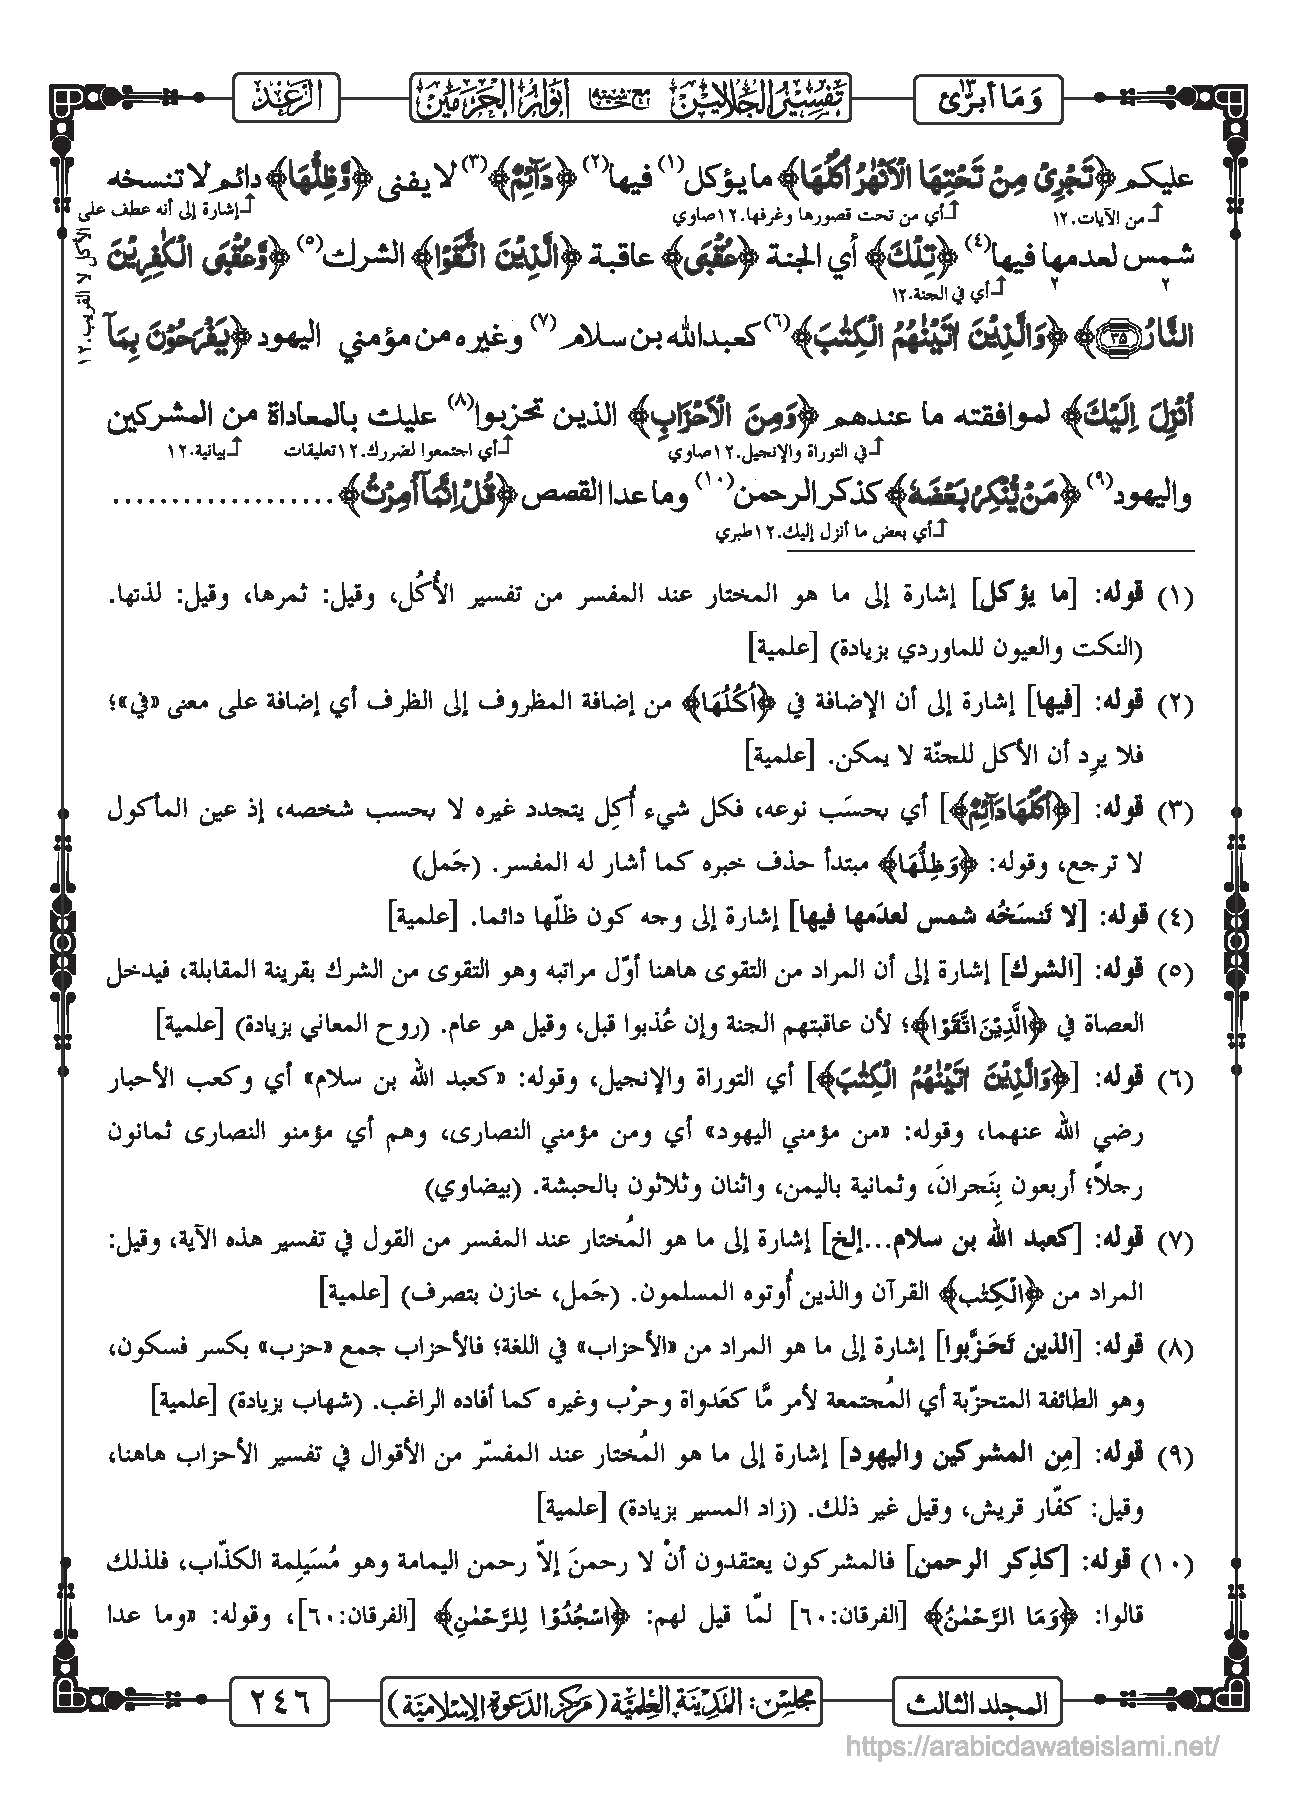 وَمَا أبرّئ ١٣
تفسير الجلالين مع حاشية أنوار الحرمين
الرعد
عليكم ﴿تَجْرِیْ مِنْ تَحْتِهَا الْاَنْهٰرُ اُكُلُهَا﴾ ما يؤكل(١) فيها(٢) ﴿دَآئِمٌ﴾(٣) لا يفنى ﴿وَّظِلُّهَا﴾ دائم لا تنسخه
من الآيات.١٢ أي من تحت قصورها وغرفها.١٢صاوي إشارة إلى أنه عطف على
الأكل لا القريب.١٢
شمس لعدمها فيها(٤) ﴿تِلْكَ﴾ أي الجنة ﴿عُقْبَى﴾ عاقبة ﴿الَّذِيْنَ اتَّقَوْا﴾ الشرك(٥) ﴿وَّعُقْبَى الْكٰفِرِيْنَ
٢ ٢ أي في الجنة.١٢
النَّارُ ﴿٣٥﴾﴾ ﴿وَالَّذِيْنَ اٰتَيْنٰهُمُ الْكِتٰبَ﴾(٦) كعبدالله بن سلام(٧) وغيره من مؤمني اليهود ﴿يَفْرَحُوْنَ بِمَآ
اُنْزِلَ اِلَيْكَ﴾ لموافقته ما عندهم ﴿وَمِنَ الْاَحْزَابِ﴾ الذين تحزبوا(٨) عليك بالمعاداة من المشركين
في التوراة والإنجيل.١٢صاوي أي اجتمعوا لضررك.١٢تعليقات بيانية.١٢
واليهود(٩) ﴿مَنْ يُّنْكِرُ بَعْضَهٗ﴾ كذكر الرحمن(١٠) وما عدا القصص ﴿قُلْ اِنَّمَآ اُمِرْتُ﴾ ...................
أي بعض ما أنزل إليك.١٢طبري
(١) قوله: [ما يؤكل] إشارة إلى ما هو المختار عند المفسر من تفسير الأُكُل، وقيل: ثمرها، وقيل: لذتها.
(النكت والعيون للماوردي بزيادة) [علمية]
(٢) قوله: [فيها] إشارة إلى أن الإضافة في ﴿اُكُلُهَا﴾ من إضافة المظروف إلى الظرف أي إضافة على معنى «في»؛
فلا يرِد أن الأكل للجنّة لا يمكن. [علمية]
(٣) قوله: [﴿اُكُلُهَا دَآئِمٌ﴾] أي بحسَب نوعه، فكل شيء أُكِل يتجدد غيره لا بحسب شخصه، إذ عين المأكول
لا ترجع، وقوله: ﴿وَظِلُّهَا﴾ مبتدأ حذف خبره كما أشار له المفسر. (جَمل)
(٤) قوله: [لا تَنسَخُه شمس لعدَمها فيها] إشارة إلى وجه كون ظلّها دائما. [علمية]
(٥) قوله: [الشرك] إشارة إلى أن المراد من التقوى هاهنا أوّل مراتبه وهو التقوى من الشرك بقرينة المقابلة، فيدخل
العصاة في ﴿الَّذِيْنَ اتَّقَوْا﴾؛ لأن عاقبتهم الجنة وإن عُذبوا قبل، وقيل هو عام. (روح المعاني بزيادة) [علمية]
(٦) قوله: [﴿وَالَّذِيْنَ اٰتَيْنٰهُمُ الْكِتٰبَ﴾] أي التوراة والإنجيل، وقوله: «كعبد الله بن سلام» أي وكعب الأحبار
رضي الله عنهما، وقوله: «من مؤمني اليهود» أي ومن مؤمني النصارى، وهم أي مؤمنو النصارى ثمانون
رجلاً؛ أربعون بِنَجرانَ، وثمانية باليمن، واثنان وثلاثون بالحبشة. (بيضاوي)
(٧) قوله: [كعبد الله بن سلام...إلخ] إشارة إلى ما هو المُختار عند المفسر من القول في تفسير هذه الآية، وقيل:
المراد من ﴿الْكِتٰب﴾ القرآن والذين أُوتوه المسلمون. (جَمل، خازن بتصرف) [علمية]
(٨) قوله: [الذين تَحَزَّبوا] إشارة إلى ما هو المراد من «الأحزاب» في اللغة؛ فالأحزاب جمع «حزب» بكسر فسكون،
وهو الطائفة المتحزّبة أي المُجتمعة لأمر مَّا كعَدواة وحرْب وغيره كما أفاده الراغب. (شهاب بزيادة) [علمية]
(٩) قوله: [مِن المشركين واليهود] إشارة إلى ما هو المُختار عند المفسّر من الأقوال في تفسير الأحزاب هاهنا،
وقيل: كفّار قريش، وقيل غير ذلك. (زاد المسير بزيادة) [علمية]
(١٠) قوله: [كذِكر الرحمن] فالمشركون يعتقدون أنْ لا رحمنَ إلاّ رحمن اليمامة وهو مُسَيلِمة الكذّاب، فلذلك
قالوا: ﴿وَمَا الرَّحْمٰنُ﴾ [الفرقان:٦٠] لمّا قيل لهم: ﴿اسْجُدُوْا لِلرَّحْمٰنِ﴾ [الفرقان:٦٠]، وقوله: «وما عدا
المجلد الثالث
مجلس: المدينة العلمية (مركز الدعوة الإسلامية)
٢٤٦
https://arabicdawateislami.net/